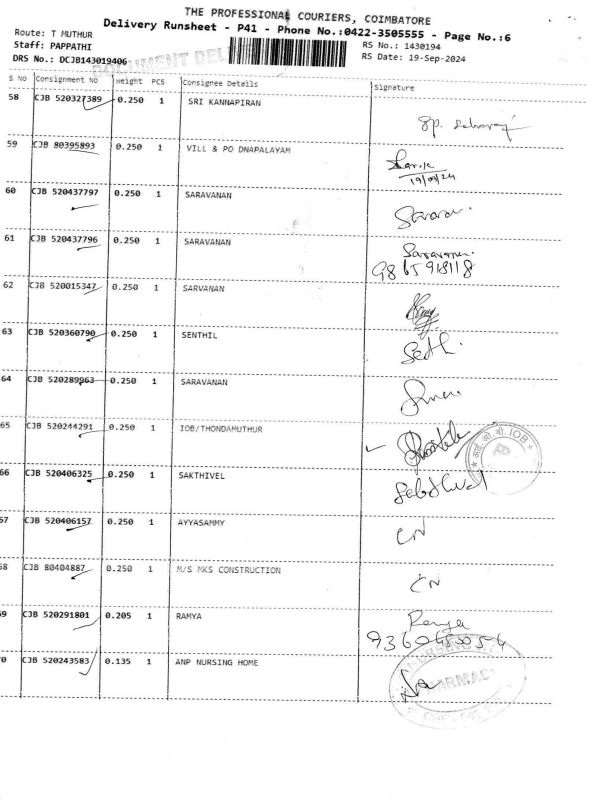 THE PROFESSIONAL COURIERS, COIMBATORE
Delivery Runsheet - P41 - Phone No.:0422-3505555 - Page No.:6
Route: T MUTHUR
RS No.: 1430194
Staff: PAPPATHI
RS Date: 19-Sep-2024
DRS No.: DCJB143019406
DOCUMENT DEL
S No Consignment No Weight PCS Consignee Details Signature
58 CJB 520327389 0.250 1 SRI KANNAPIRAN
59 CJB 80395893 0.250 1 VILL & PO DNAPALAYAM
19/09/24
60 CJB 520437797 0.250 1 SARAVANAN
61 CJB 520437796 0.250 1 SARAVANAN Saravanan
9865918118
62 CJB 520015347 0.250 1 SARVANAN
63 CJB 520360790 0.250 1 SENTHIL
64 CJB 520289963 0.250 1 SARAVANAN
65 CJB 520244291 0.250 1 IOB/THONDAMUTHUR
आई.ओ.बी. IOB
66 CJB 520406325 0.250 1 SAKTHIVEL
67 CJB 520406157 0.250 1 AYYASAMMY CN
68 CJB 80404887 0.250 1 M/S MKS CONSTRUCTION CN
69 CJB 520291801 0.205 1 RAMYA Ramya
70 CJB 520243583 0.135 1 ANP NURSING HOME
NURSING
PHARMACY